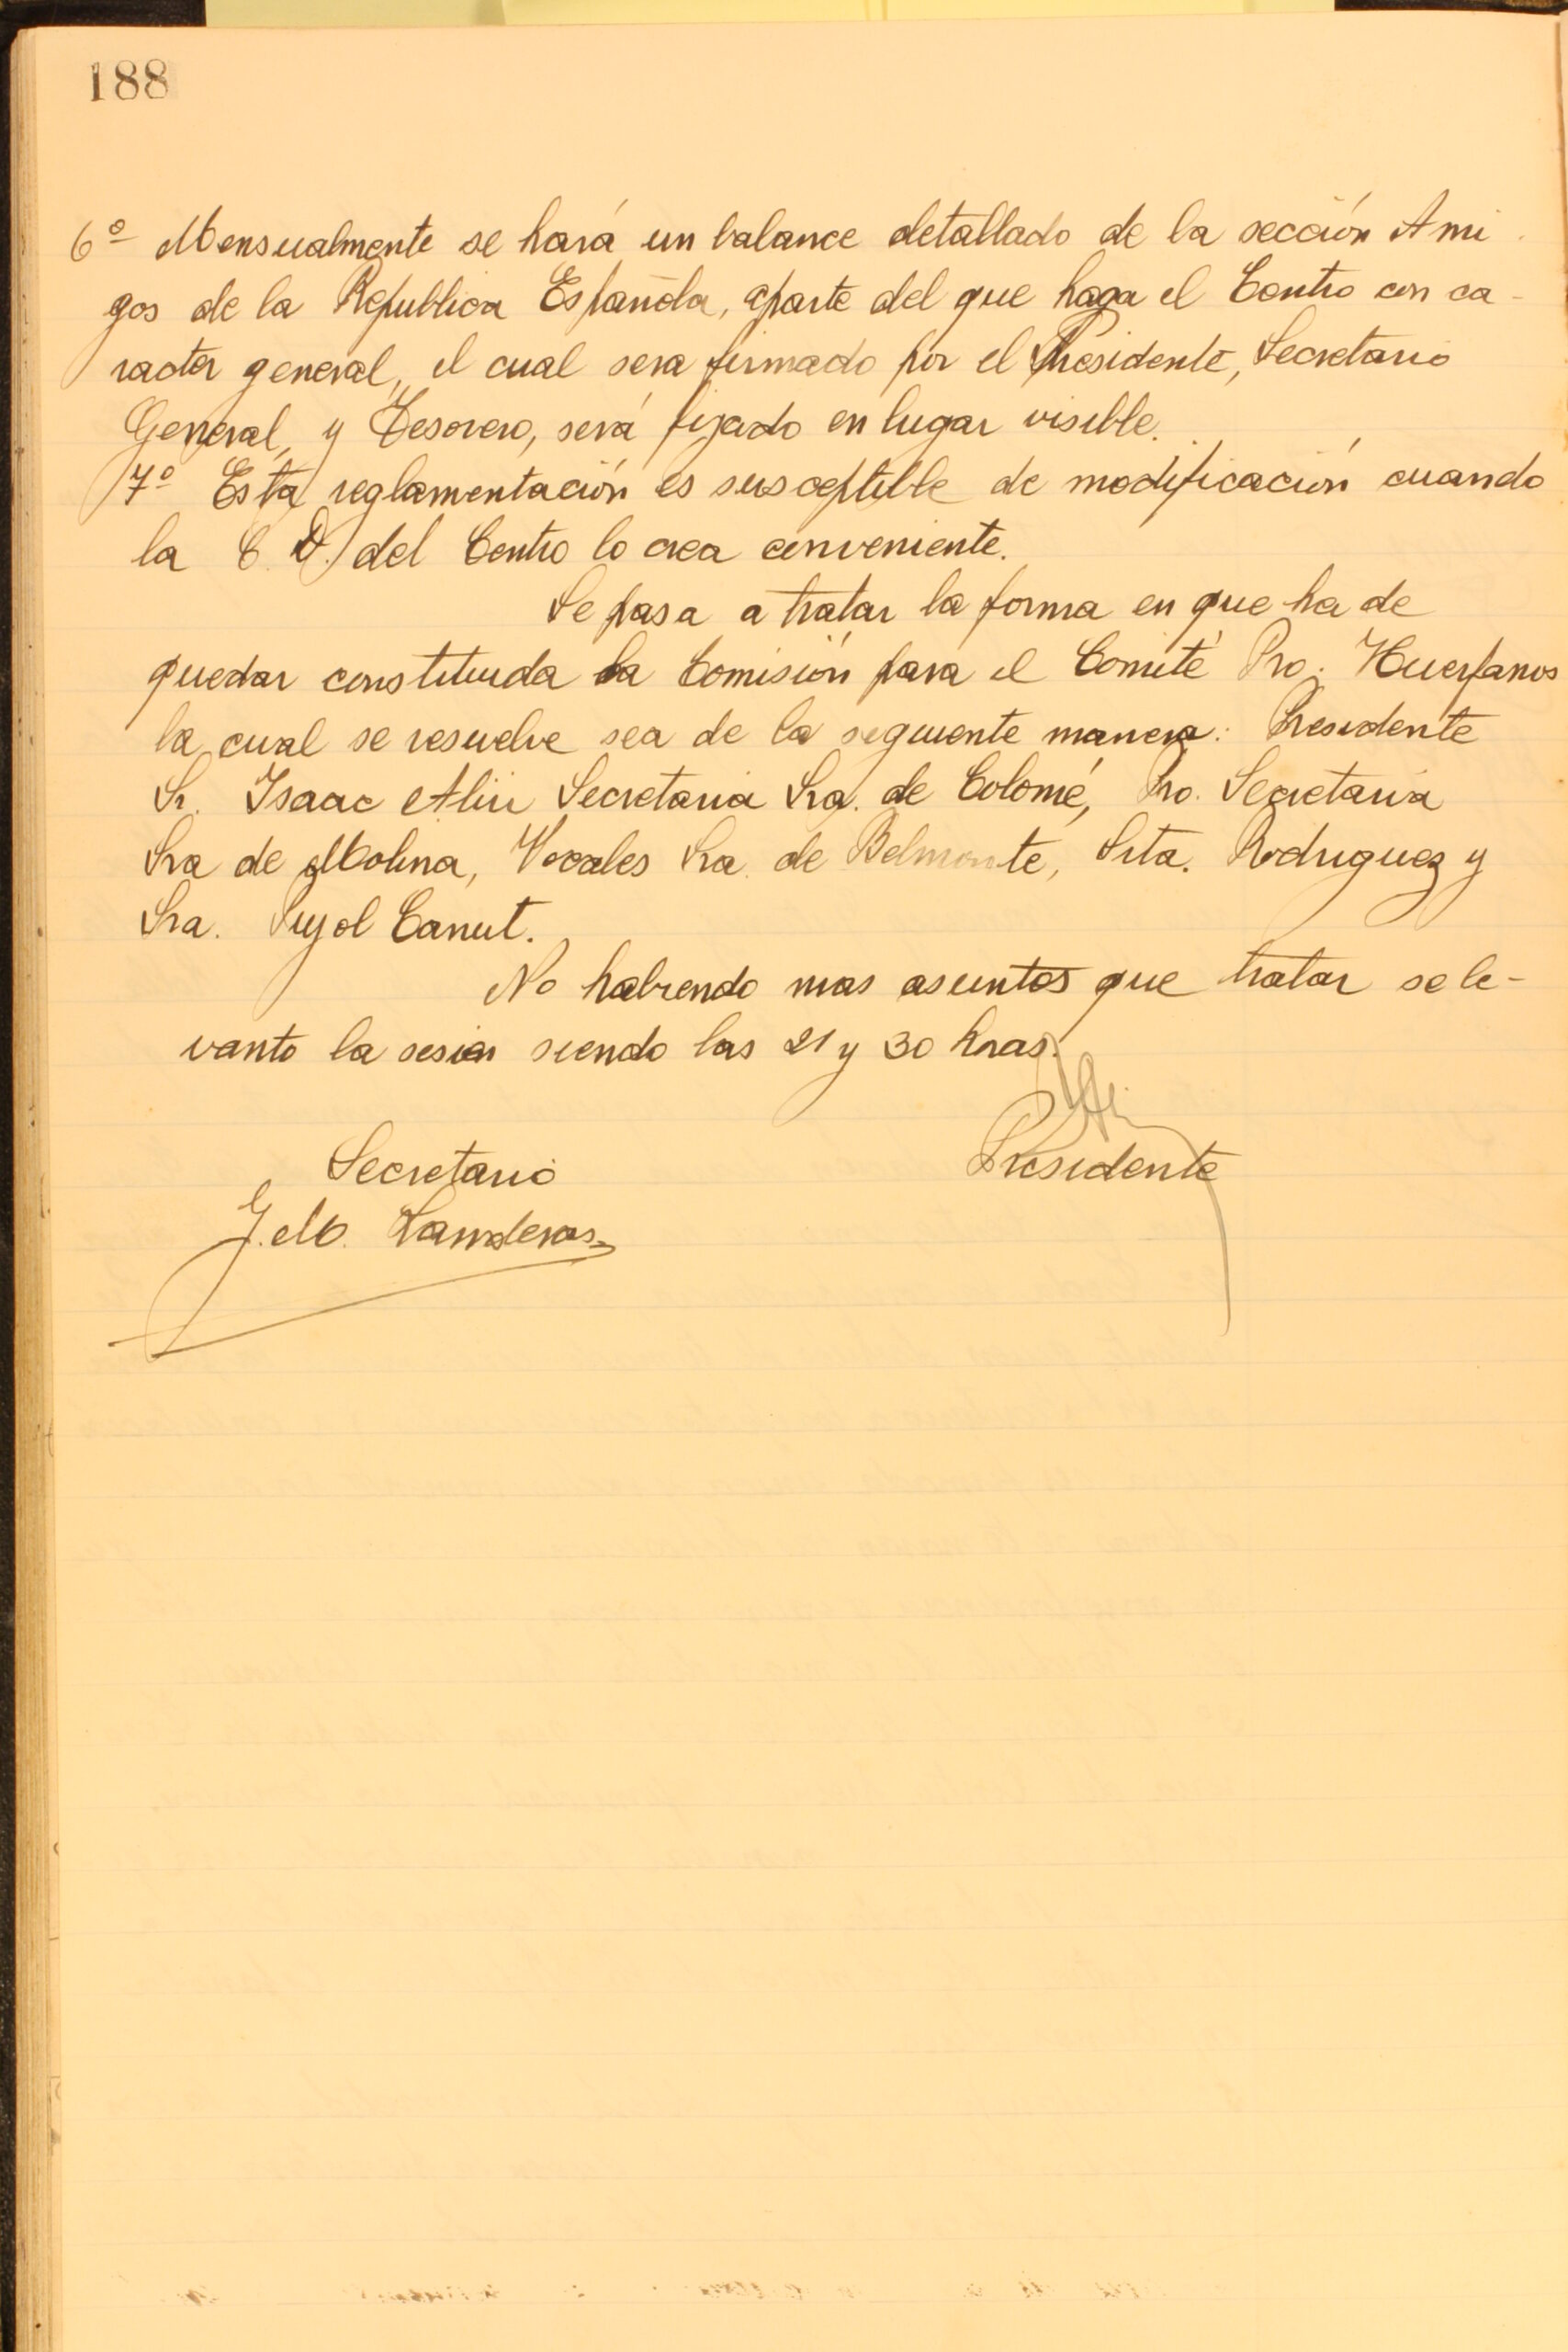 188
6º Mensualmente se hará un balance detallado de la sección Ami
gos de la Republica Española, aparte del que haga el Centro con ca-
racter general, el cual sera firmado por el Presidente, Secretario
General, y Tesorero, será fijado en lugar visible.
7º Esta reglamentación es susceptible de modificación cuando
la C. D. del Centro lo crea conveniente.
Se pasa a tratar la forma en que ha de
quedar constituida la Comisión para el Comité Pro. Huerfanos
la cual se resuelve sea de la siguiente manera: Presidente
Sr. Isaac Secretaria Sra. de Colomé, Pro. Secretaria
Sra de Molina, Vocales Sra. de Belmonte, Srta. Rodriguez y
Sra. Pujol Canut.
No habiendo mas asuntos que tratar se le-
vanto la sesion siendo las 21 y 30 hras.
Secretario Presidente
J. M. Landeras